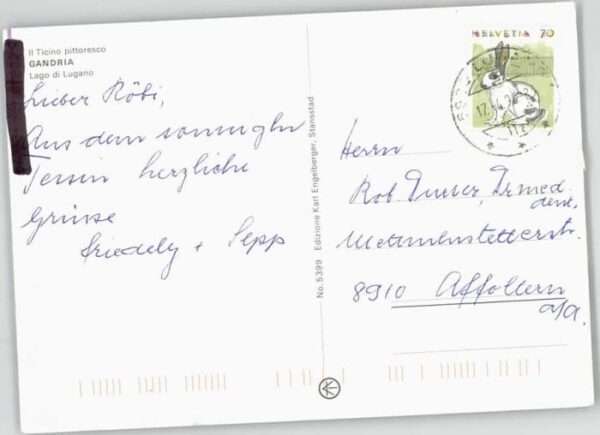 Il Ticino pittoresco
GANDRIA
Lago di Lugano
Lieber Röbi,
Aus dem sonnigen
Tessin herzliche
Grüsse
Friedely + Sepp
No. 5399 Edizione Karl Engelberger, Stansstad
HELVETIA 70
17.
Herrn
Rob Dr med.
dent.
Mettmenstetterstr.
8910 Affoltern
a/A.